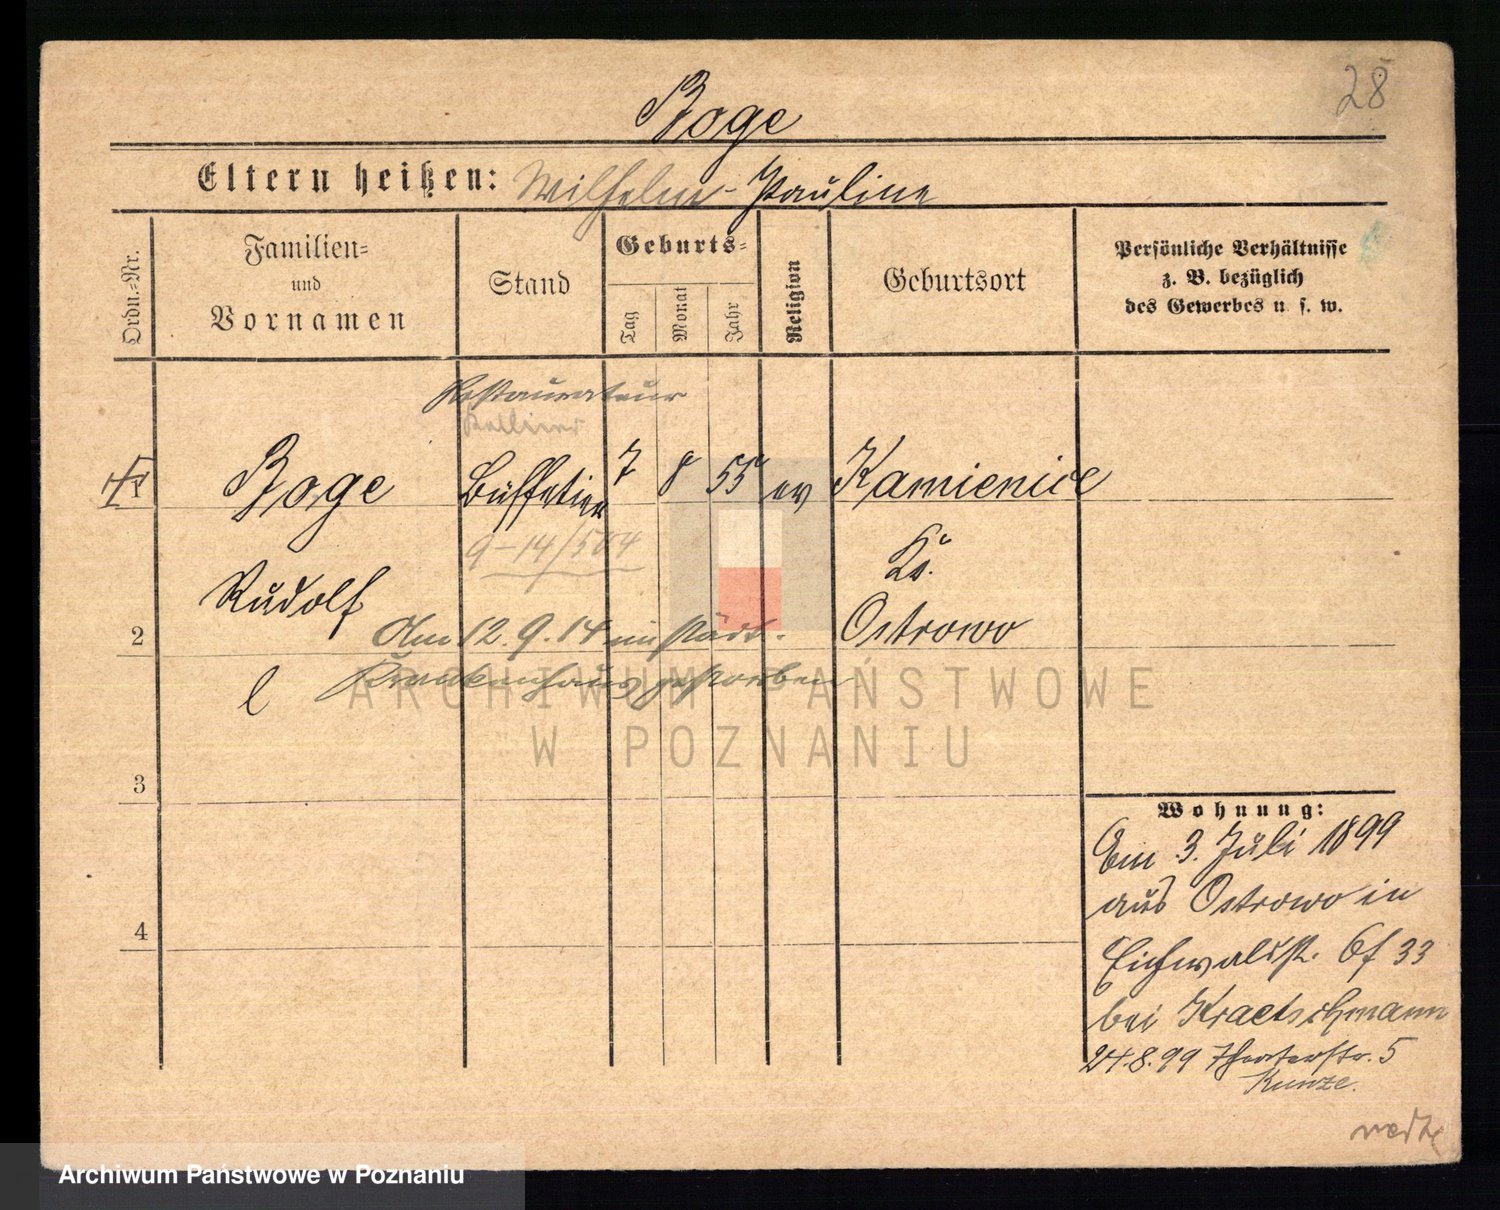 28
Boge
Eltern heißen: Wilhelm - Pauline
Ordn.-Nr.
Familien-
und
Vornamen
Stand
Geburts-
Tag
Monat
Jahr
Religion
Geburtsort
Persönliche Verhältnisse
z. B. bezüglich
des Gewerbes u. s. w.
Restaurateur
Kellner
1 Boge Büffetier 7 8 55 ev Kamienice
9-14/504
Ks.
Rudolf
2 Ostrowo
Am 12.9.14 im städt.
Krankenhaus gestorben
l
3
4
Wohnung:
Am 3. Juli 1899
aus Ostrowo in
Eichwaldst. 33
bei Kraetschmann
24.8.99 Theaterstr. 5
Kunze.
ARCHIWUM PAŃSTWOWE
W POZNANIU
Archiwum Państwowe w Poznaniu